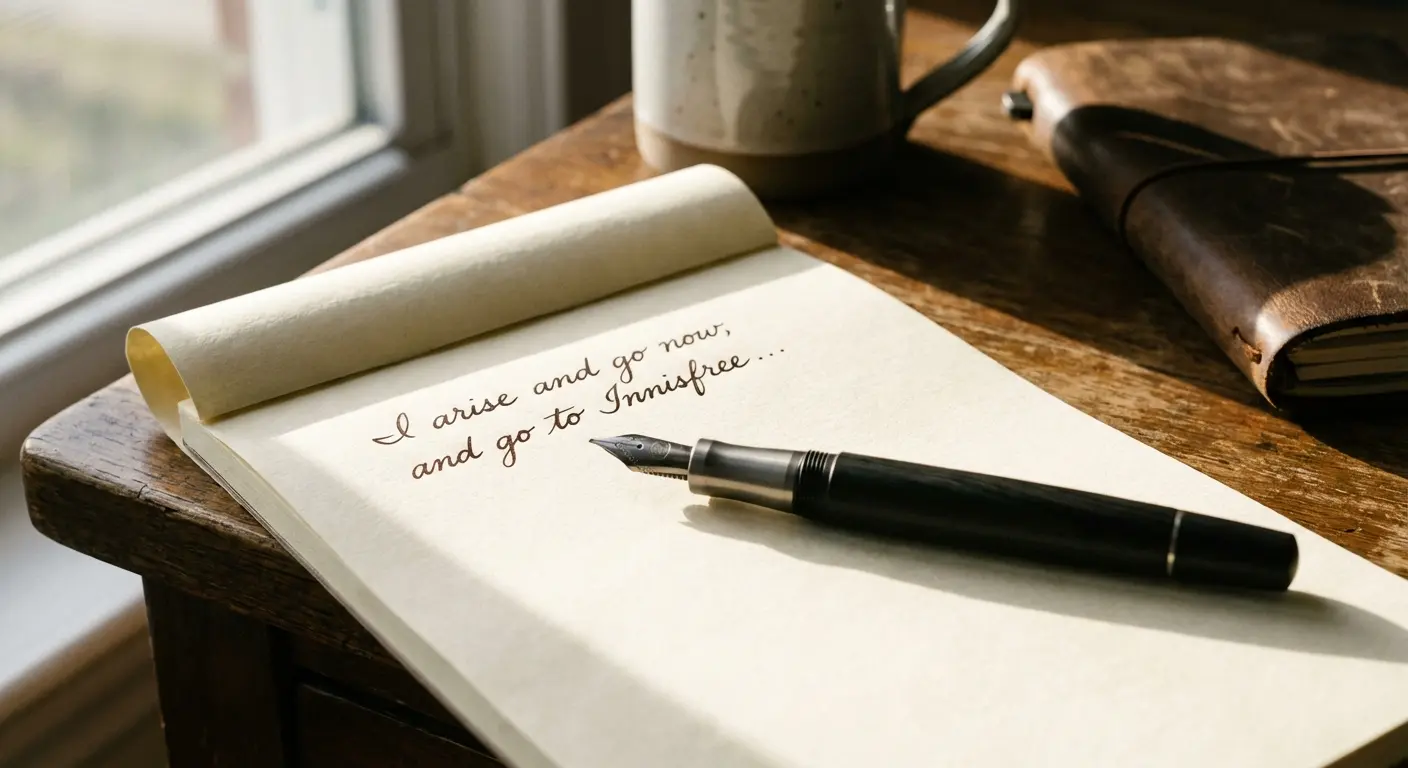 I arise and go now,
and go to Innisfree...